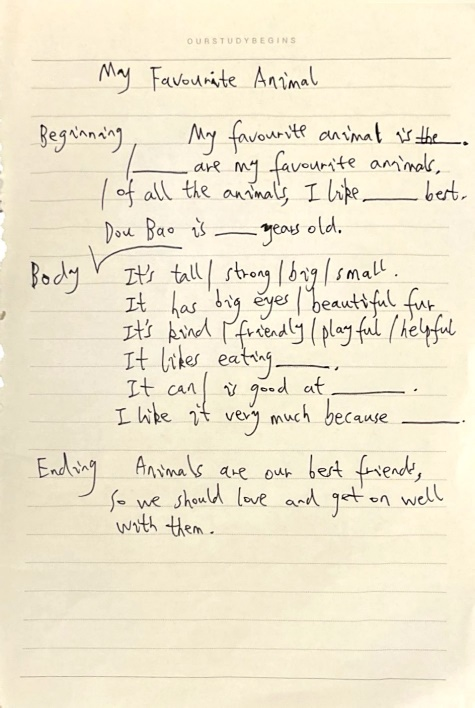 OURSTUDYBEGINS
My Favourite Animal
Beginning My favourite animal is the ___.
/ ___ are my favourite animals.
/ of all the animals, I like ___ best.
Dou Bao is ___ years old.
Body It's tall / strong / big / small.
It has big eyes / beautiful fur
It's kind / friendly / playful / helpful
It likes eating ___.
It can / is good at ___.
I like it very much because ___.
Ending Animals are our best friends,
so we should love and get on well
with them.